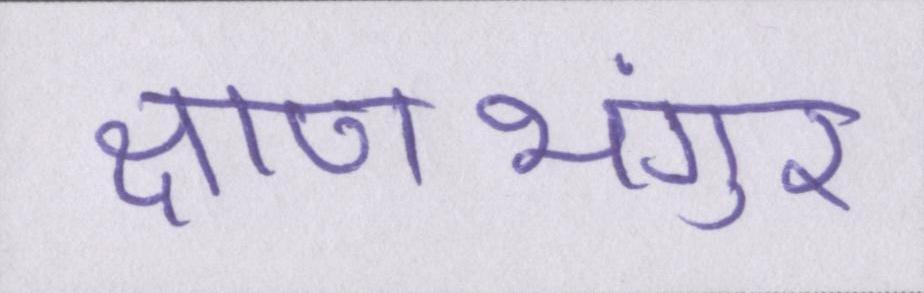 क्षाण भंगुर